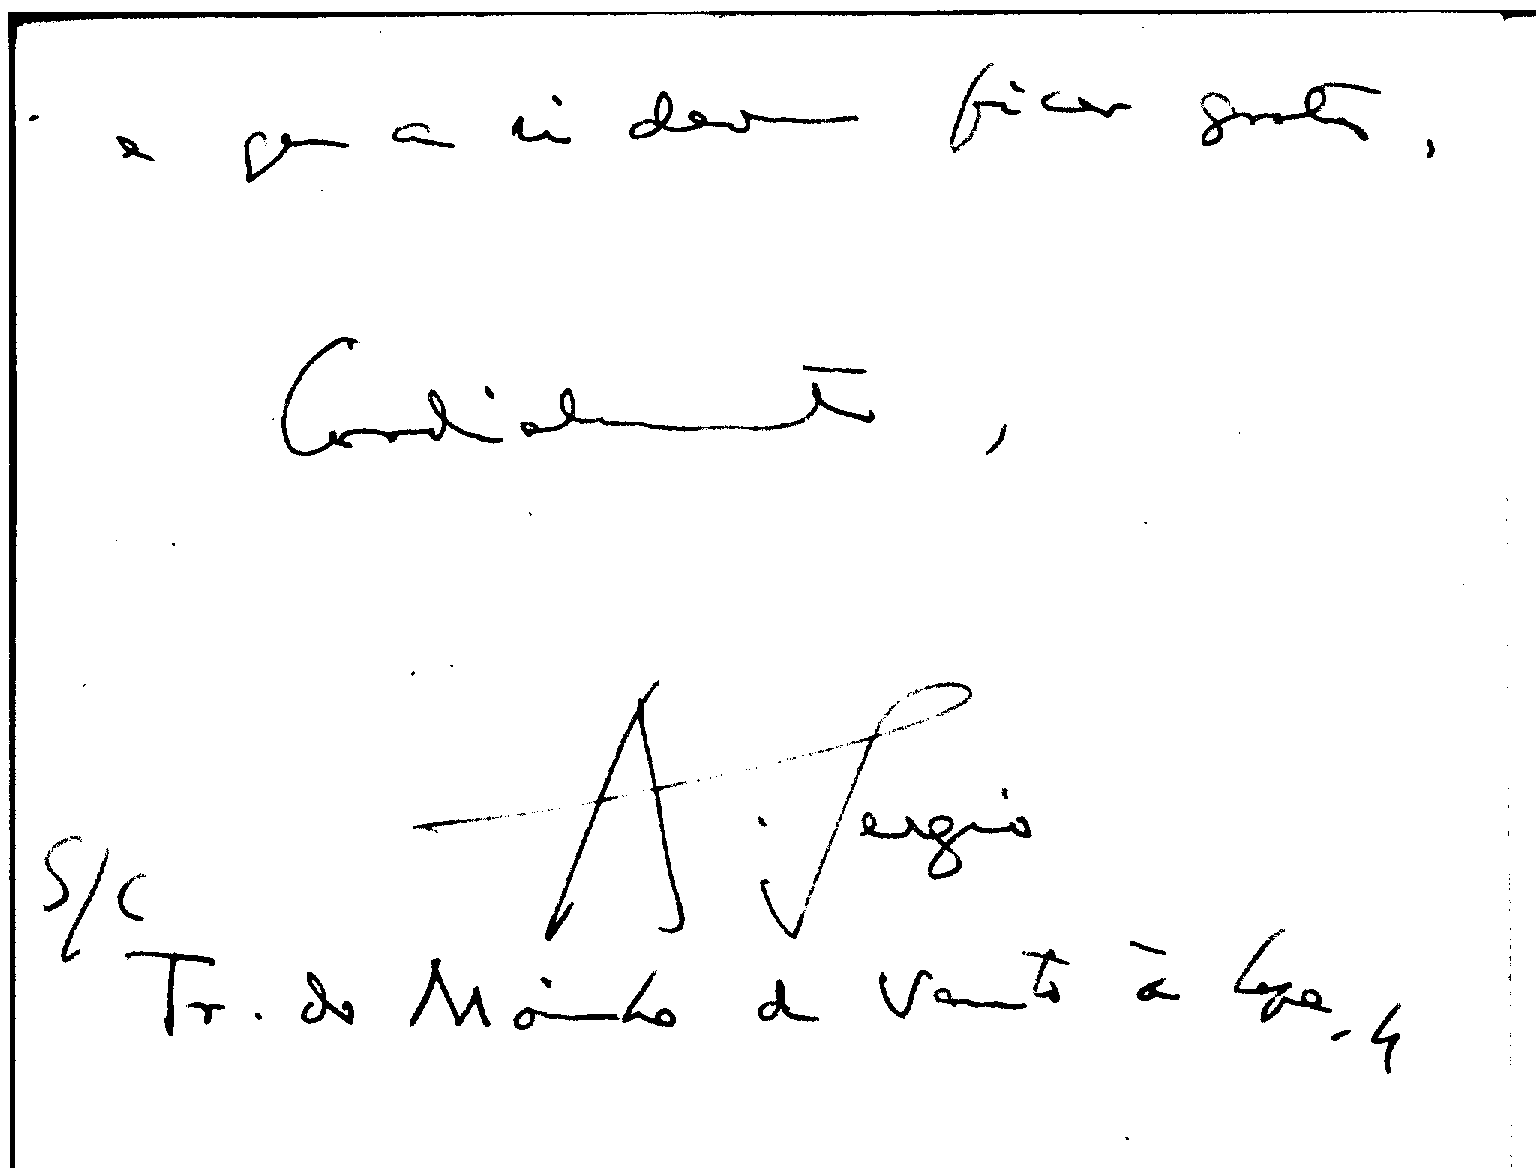 e que a si devem ficar gratos,
Cordialmente,
A. Sergio
S/C
Tr. do Moinho de Vento à Lapa, 4